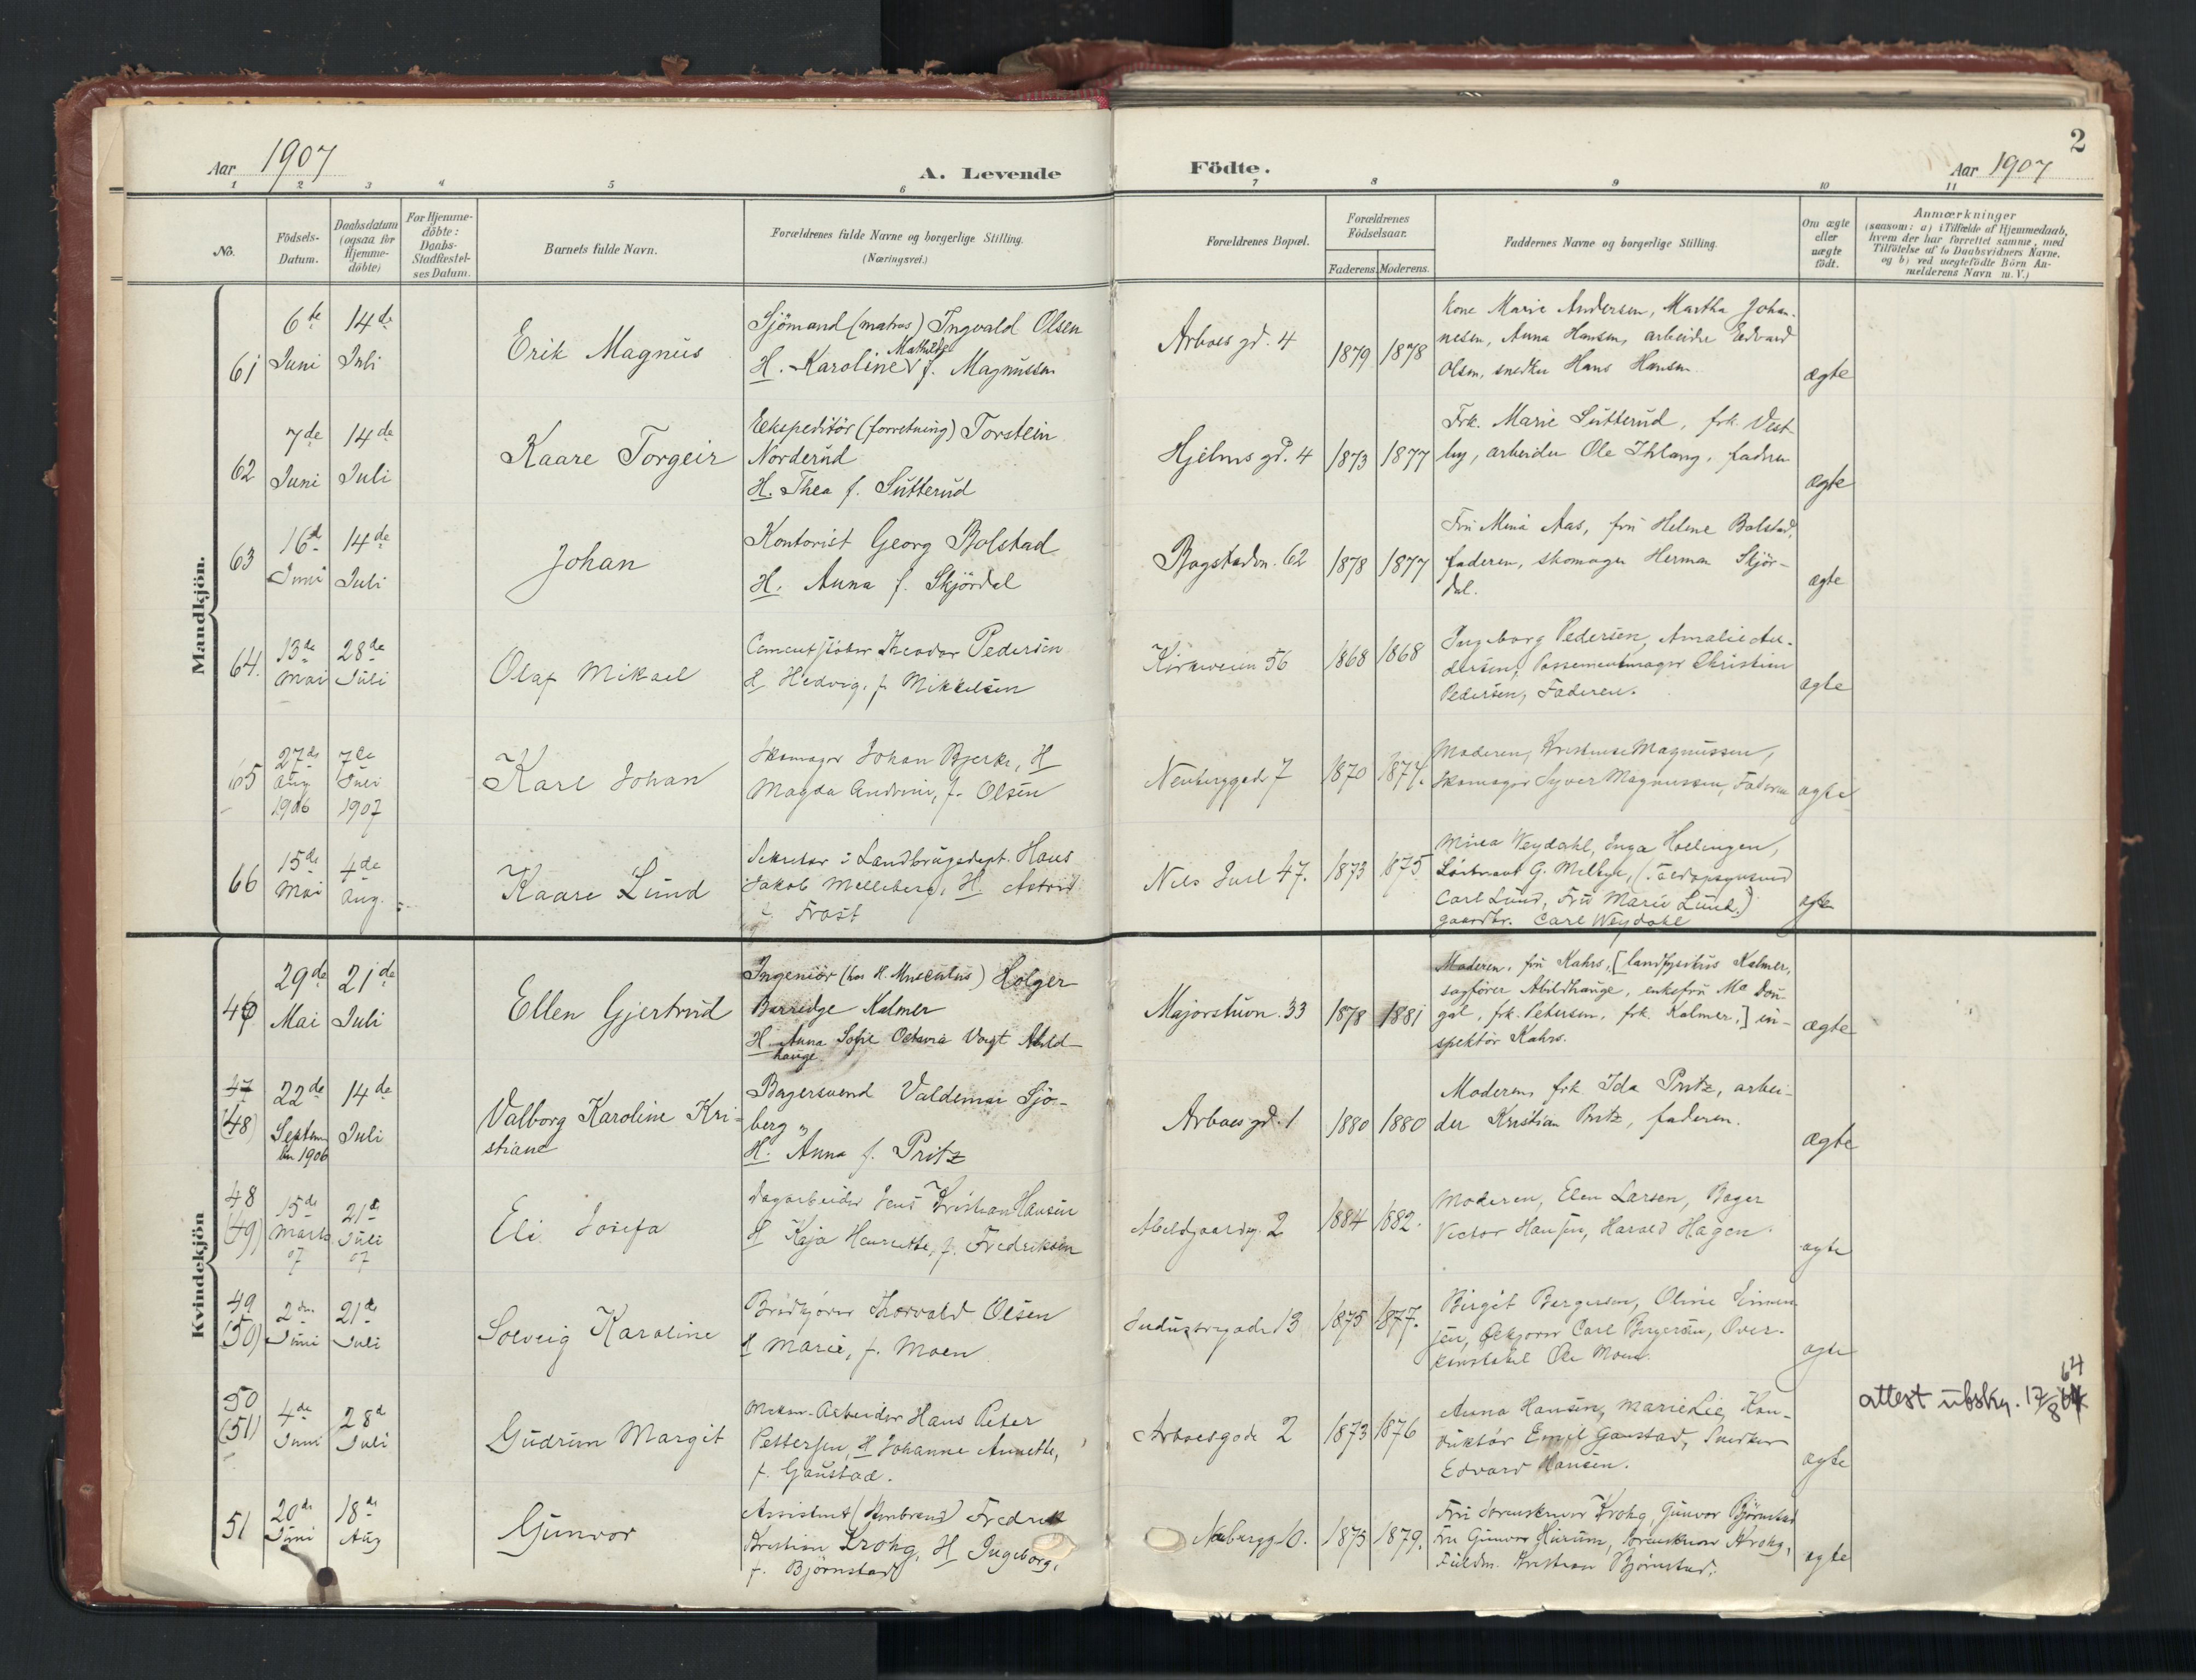 2
Aar 1907
A. Levende
Födte.
Aar 1907
1 2 3 4 5 6 7 8 9 10 11
No.
Födsels-
Datum.
Daabsdatum
(ogsaa for
Hjemme-
döbte)
For Hjemme-
döbte:
Daabs-
Stadfestel-
ses Datum.
Barnets fulde Navn.
Forældrenes fulde Navne og borgerlige Stilling.
(Næringsvei.)
Forældrenes Bopæl.
Forældrenes
Födselsaar.
Faderens. Moderens.
Faddernes Navne og borgerlige Stilling.
Om ægte
eller
uægte
födt.
Anmærkninger
(saasom: a) i Tilfælde af Hjemmedaab,
hvem der har forrettet samme, med
Tilföielse af to Daabsvidners Navne.
og b) ved uægtefödte Börn An-
melderens Navn m. V.)
Mandkjön.
61
6te
Juni
14de
Juli
Erik Magnus
Sjömand (matros) Ingvald Olsen
H. Karoline Mathilde f. Magnussen
Arboes gd. 4
1879 1878
Kone Marie Andersen, Martha Johan-
nesen, Anna Hansen, arbeider Edvard
Olsen, snedker Hans Hansen
ægte
62
7de
Juni
14de
Juli
Kaare Torgeir
Ekspeditör (forretning) Torstein
Norderud
H. Thea f. Sutterud
Hjelms gd. 4
1873 1877
Frk. Marie Sutterud, frk. Vest-
by, arbeider Ole Ihlang, faderen
ægte
63
16de
Juni
14de
Juli
Johan
Kontorist Georg Bolstad
H. Anna f. Skjördal
Bogstadvn. 62
1878 1877
Fru Mina Aas, fru Helene Bolstad,
faderen, skomager Herman Skjör-
dal.
ægte
64.
13de
Mai
28de
Juli
Olaf Mikael
Cementstöber Theodor Pedersen
H Hedvig, f. Mikkelsen
Kirkeveien 56
1868 1868
Ingeborg Pedersen, Amalie An-
dersen, Possementmager Christian
Pedersen, Faderen.
ægte
65
27de
Aug
1906
7de
Juli
1907
Karl Johan
Skomager Johan Bjerke, H
Magda Andrine, f. Olsen
Neuberggade 7
1870 1874.
Moderen, Kristense Magnussen,
Skomager Syver Magnussen, Faderen
ægte
66
15de
Mai
4de
Aug.
Kaare Lund
Sekretær i Landbrugsdept. Hans
Jakob Melleberg, H Astrid
f. Frost
Nils Juel 47.
1873 1875
Minea Weydahl, Inga Hollingen,
Carl Lund, Fru Marie Lund,)
gaardbr. Carl Weydahl
ægte
Kvindekjön
46
29de
Mai
21de
Juli
Ellen Gjertrud
Ingeniör (hos H. Musculus) Holger
Barredge Kalmer
H. Anna Sofie Octavia Voigt Abild-
hauge
Majorstuvn. 33
1878 1881
Moderen, fru Kahrs, [landfysikus Kalmer,
sagförer Abildhauge, enkefru Mc Dou-
gal, frk. Petersen, frk. Kalmer,] in-
spektör Kahrs.
ægte
47
(48)
22de
Septem
ber 1906
14de
Juli
Valborg Karoline Kri-
stiane
Bagersvend Valdemar Sjö-
berg
H. Anna f. Pritz
Arboes gd. 1
1880 1880
Moderen, frk Ida Pritz, arbei-
der Kristian Pritz, faderen.
ægte
48
(49)
15de
Marts
07
21de
Juli
07
Eli Josefa
Dagarbeider Jens Kristian Hansen
H Kaja Henriette, f. Fredriksen
Abildgaardsg. 2
1884 1882.
Moderen, Elen Larsen, Bager
Victor Hansen, Harald Hagen
ægte
49
(50)
2den
Juni
21de
Juli
Solveig Karoline
Brödkjörer Thorvald Olsen
H Marie, f. Moen
Industrigade 13
1875 1877.
Birgit Bergersen, Oline Simen-
sen, Ölkjörer Carl Bergersen, Over-
konstabel Ole Moen.
ægte
50
(51)
4de
Juni
28de
Juli
Gudrun Margit
Mekan. Arbeider Hans Peter
Pettersen, H Johanne Annette,
f. Gaustad.
Arboesgade 2
1873 1876
Anna Hansen, Marie Lie, Kon-
duktör Emil Gaustad, Snedker
Edvard Hansen.
ægte
attest utsky. 17/8 64
64
51
20de
Juni
18de
Aug
Gunvor
Assistent Fredrik
Kristian Krohg, H Ingeborg,
f. Björnstad
Neubergg 10.
1873 1879.
Fru Sorenskriver Krohg, Gunvor Björnstad
Fru Gunvor Hiorum, Sorenskriver Krohg,
Fuldm. Kristian Björnstad.
ægte